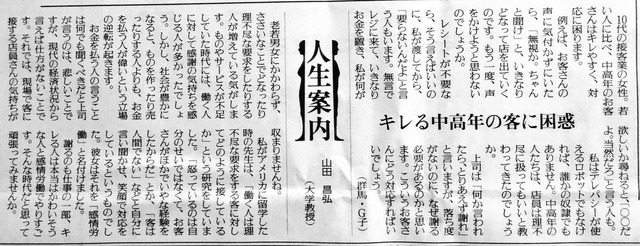 10代の接客業の女性。若
い人に比べ、中高年のお客
さんはキレやすく、対
応に困ります。
例えば、お客さんの
声に気付かずにいた
ら、「無視か。ちゃん
と聞け」と、いきなり
どなって店を出ていく
のです。もう一度、声
をかけようと思わない
のでしょうか。
レシートが不要な
ら、そう言えばいいの
に、私が渡してから、
「要らないんだよ」と言
う人もいます。無言で
レジに来て、いきなり
お金を置き、私が何が
キレる中高年の客に困惑
欲しいか尋ねると、「〇〇だ
よ。当然だろ」と言う人も。
私はテレパシーが使
えるロボットでもなけ
れば、誰かの奴隷でも
ありません。中高年の
人たちは、店員は理不
尽に扱ってもいいと教
わってきたのでしょう
か。
上司は「何か言われ
たら、とりあえず謝れ」
と言いますが、落ち度
がないのに、なぜ謝る
必要があるのかと思い
ます。こういうお客さ
んにどう対すればよい
でしょう。
(群馬・G子)
人生案内
山田 昌弘
(大学教授)
老若男女にかかわらず、
ささいなことでどなったり
理不尽な要求をしたりする
人が増えている気がしま
す。ものやサービスが不足
していた時代には、働く人
に対して感謝の気持ちを感
じる人が多かったでしょ
う。しかし、社会が豊かに
なると、ものを作ったり売
ったりする人よりも、お金
を払う人が偉いという立場
の逆転が起きます。
お金を払う人の言うこと
は何でも聞くべきだと上司
が言うのは、悲しいことで
すが、現代の経済状況から
言えば仕方がないことで
す。それでは、現場で客に
接する店員さんの気持ちが
収まりませんね。
私がアメリカに留学した
時の先生は、「働く人は理
不尽な要求をする客に対し
てどのように接している
か」という研究をしていま
した。「怒っているのは自
分のせいではなくて、お客
さんがほかでいやな経験を
したからだ」とか、「客は
人間でない」などと自分に
言い聞かせ、笑顔で対応を
しているというものでし
た。彼女はそれを「感情労
働」と名付けました。
謝るのも仕事の一部、キ
レる人は本当はかわいそう
な人と感情労働でやりすご
す。そんな時代だと思って
頑張ってみませんか。